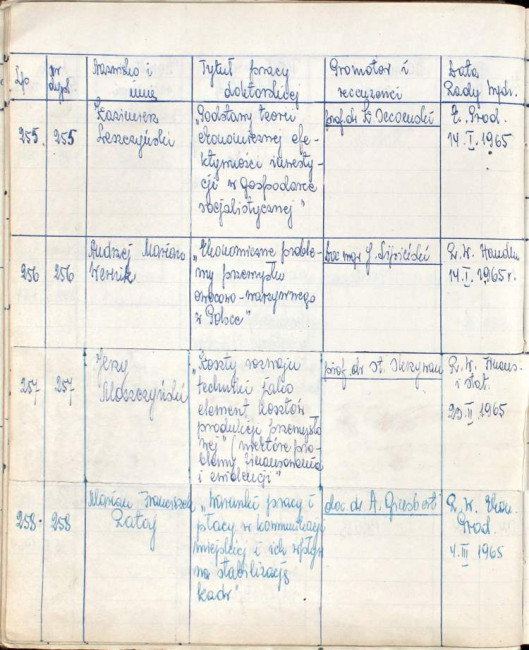 Lp
nr dypl.
Nazwisko i
imię
Tytuł pracy
doktorskiej
Promotor i
recenzenci
Data
Rady Wydz.
255.
255
Kazimierz
Leszczyński
"Podstawy teorii
ekonomicznej efe-
ktywności inwesty-
cji w gospodarce
socjalistycznej"
prof. dr
Prod.
14.I.1965
256
256
Andrzej Mariano
Wernik
"Ekonomiczne proble-
my przemysłu
owocowo-warzywnego
w Polsce"
doc mgr J.
R. W. Handlu
14.I.1965 r.
257
257
Jerzy
Moszczyński
"Koszty rozwoju
techniki jako
element kosztów
produkcji przemysło
wej" (niektóre pro-
blemy finansowania
i ewidencji"
prof. dr St. Skrzywan
R. W. Finans.
i Stat.
1965
258.
258
Marian Franciszek
Rataj
"Warunki pracy i
płacy w komunikacji
miejskiej i ich wpływ
na stabilizację
kadr"
doc. dr A.
R. W. Ekon.
Prod.
4.III 1965